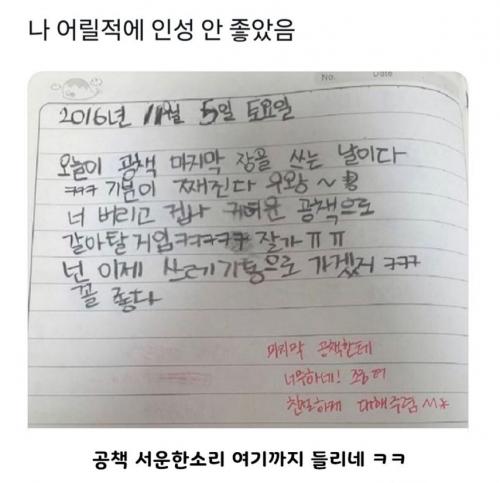 나 어릴적에 인성 안 좋았음
No.
Date
2016년 11월 5일 토요일
오늘이 공책 마지막 장을 쓰는 날이다
ㅋㅋㅋ 기분이 째진다 우왕~
너 버리고 겁나 귀여운 공책으로
갈아탈거임ㅋㅋㅋㅋ 잘가ㅠㅠ
넌 이제 쓰레기통으로 가겠지 ㅋㅋㅋ
꼴 좋다
마지막 공책한테
너무하네! 좀 더
친절하게 대해주렴 ^^*
공책 서운한소리 여기까지 들리네 ㅋㅋ